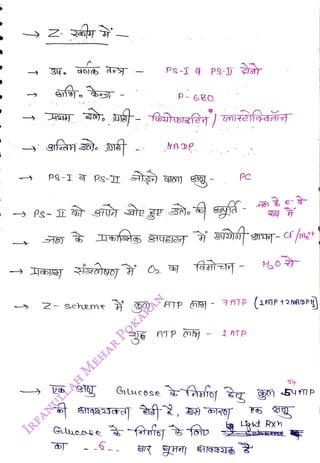 → Z- स्कीम में —
→ उप. वर्णक तन्त्र – PS-I व PS-II दोनों
→ अभि. केन्द्र – P-680
→ प्रथम इले० ग्राही – फियोफाइटिन / प्लास्टोक्विनॉन
→ अन्तिम इले० ग्राही - NADP
→ PS-I व PS-II जोड़ने वाला अणु - PC
→ PS-II को अपने खोए हुए इले० की आपूर्ति - जल के e⁻ के रूप में
→ जल के प्रकाशिक अपघटन में उपयोगी आयन - Cl⁻/Mn²⁺
→ प्रकाश संश्लेषण में O₂ का विमोचन - H₂O से
→ Z- scheme में कुल ATP लाभ - 7 ATP (1ATP+2NADPH)
शुद्ध ATP लाभ - 1 ATP
→ एक अणु Glucose के निर्माण हेतु कुल 54 ATP
की आवश्यकता होती है, इस कारण एक अणु
Light Rxn
Glucose के निर्माण के लिए
का --6-- बार घूमना आवश्यक है
IRFANULLAH MEHAR POKARAN